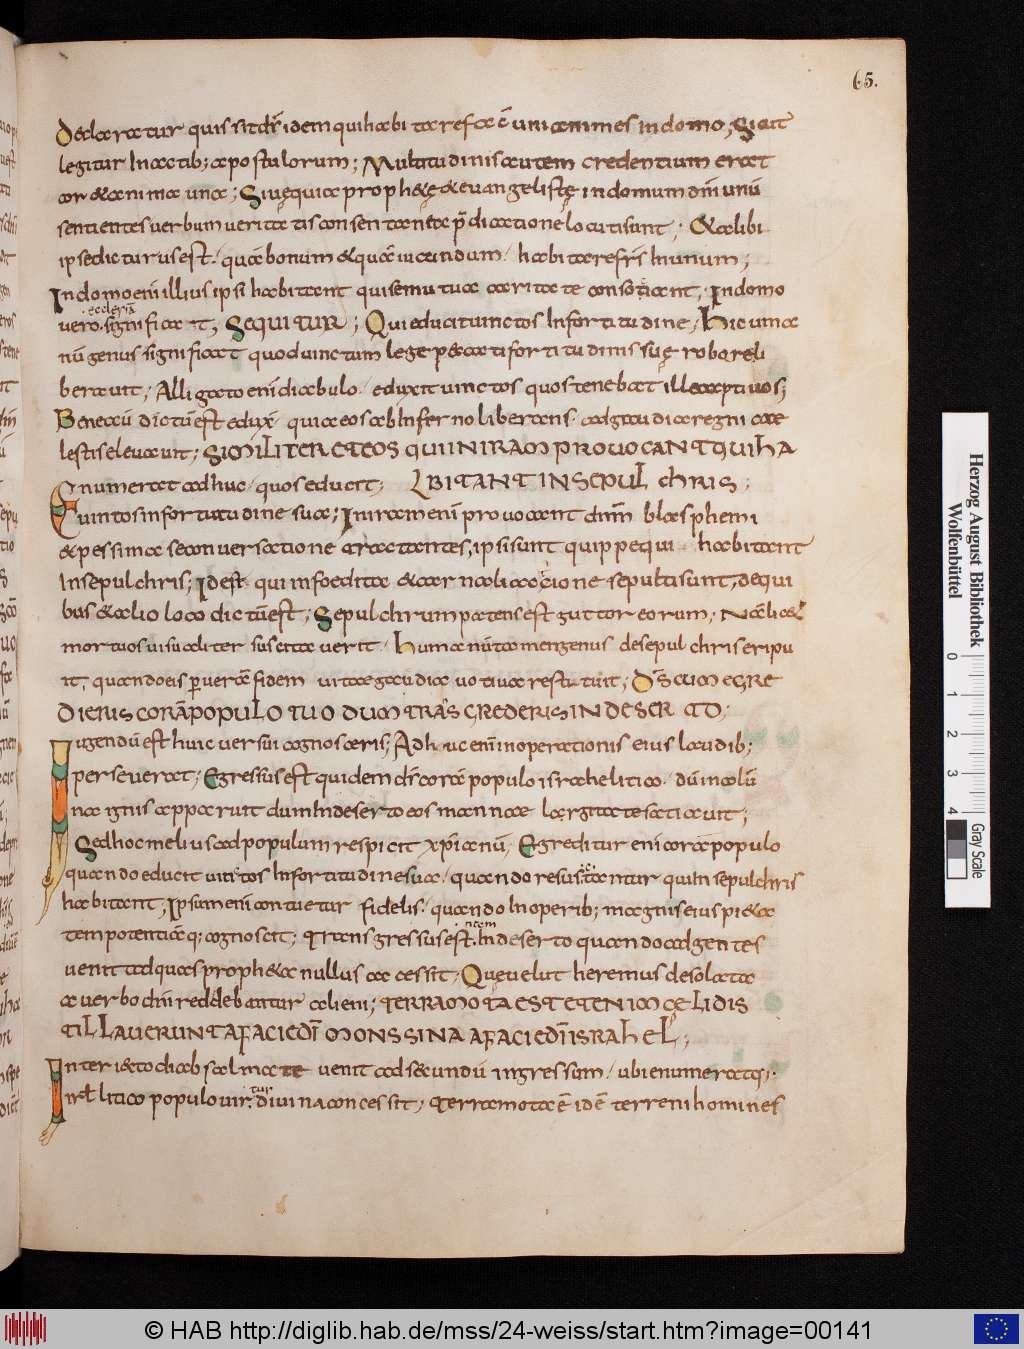 65.
declaratur quis sit dr̄ idem qui habitare facē unianimes in domo; Sicut
legitur In actib; apostulorum; Multitudinis autem credentium erat
cor & anima una; Siue quia proph&ę & euangelistę in domum dn̄i unū
sentientes uerbum ueritatis consentanea p̄dicatione locuti sunt; & alibi
ipse dicturus est. quā bonum & quā iucundum. habitare fr̄s In unum;
In domo eni illius ipsi habitant qui se mutua caritate consotiant; In domo
uero .ecclesiā. significat, SEQUITUR; Qui educit uinctos In fortitudine, Hic uinc
nū genus significat quod uinctum lege peccati fortitudinis suę robore li
berauit, Alligato eni diabulo. eduxit uinctos quos tenebat ille captiuos;
Bene aū dictū est eduxͥ quia eos ab Inferno liberans. ad gaudia regni cae
lestis eleuauit; SIMILITER ET EOS QUI IN IRAM PROUOCANT QUI HA
Enumerat ad huc. quos educit; BITANT IN SEPULCHRIS;
Euinctos in fortitudine sua; In iram eni prouocant dn̄m blasphemi
& pessima se conuersatione tractantes, ipsi sunt quippe qui habitant
In sepulchris; Idest qui in foeditate carnali actione sepulti sunt, de qui
bus & alio loco dictū est; Sepulchrum patens est guttor eorum,
mortuos uisualiter suscitauerit. Humanū tamen genus de sepulchris eripu
it, quando eis p ueram fidem uitae gaudia uotiua restituit; DS̄ CUM EGRE
DIERIS CORĀ POPULO TUO DUM TRĀSGREDERIS IN DESERTO;
Iugendū est huic uersui cognosceris; Adhuc eni in operationis eius laudib;
perseuerat; Egressus est quidem dn̄s corā populo israhelitico. dū in colū
na ignis apparuit dum In deserto eos mannae largitate satiauit;
Sed hoc melius ad populum respicit xp̄ianū, Egreditur eni corā populo
quando educit uinctos In fortitudine sua. quando resuscitantur qui In sepulchris
habitant; Ipsum eni contuetur fidelis. quando In operib; magnis eius pi&a
tem potentiāq; cognoscit; Transgressus est .nem. In deserto quando ad gentes
uenit ad quas proph&a nullus accessit, Quę uelut heremus desolata
a uerbo dn̄i reddebantur alieni; TERRA MOTA EST ETENIM CĘLI DIS
TILLAUERUNT A FACIE DĪ MONS SINA A FACIE DĪ ISRAHEL;
Interiecto diabsalmate uenit ad secundū ingressum. ubi enumeratq;.
Isrl liticopopulo uirtur diuina concessit; Terra mota ē idē terreni homines
Herzog August Bibliothek
Wolfenbüttel
0 1 2 3 4
Gray Scale
© HAB http://diglib.hab.de/mss/24-weiss/start.htm?image=00141